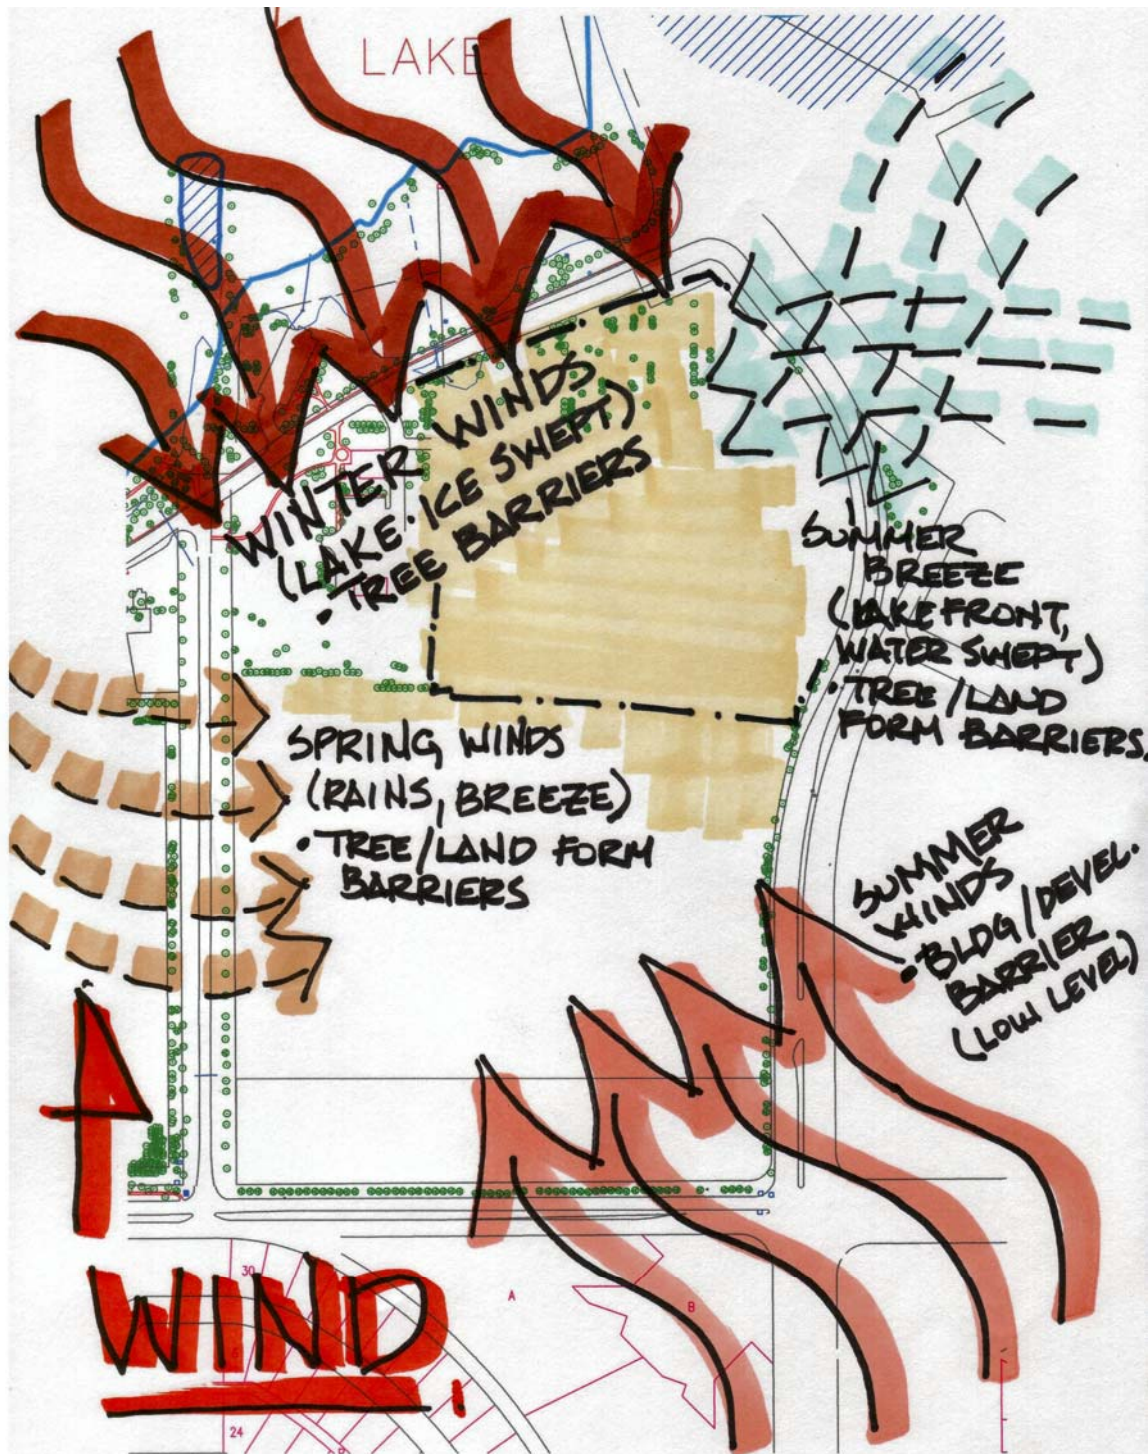 LAKE
WINTER WINDS
(LAKE · ICE SWEPT)
• TREE BARRIERS
SUMMER
BREEZE
(LAKE FRONT,
WATER SWEPT)
• TREE/LAND
FORM BARRIERS.
SPRING WINDS
(RAINS, BREEZE)
• TREE/LAND FORM
BARRIERS
SUMMER
WINDS
• BLDG/DEVEL.
BARRIER
(LOW LEVEL)
30
A
B
WIND
24